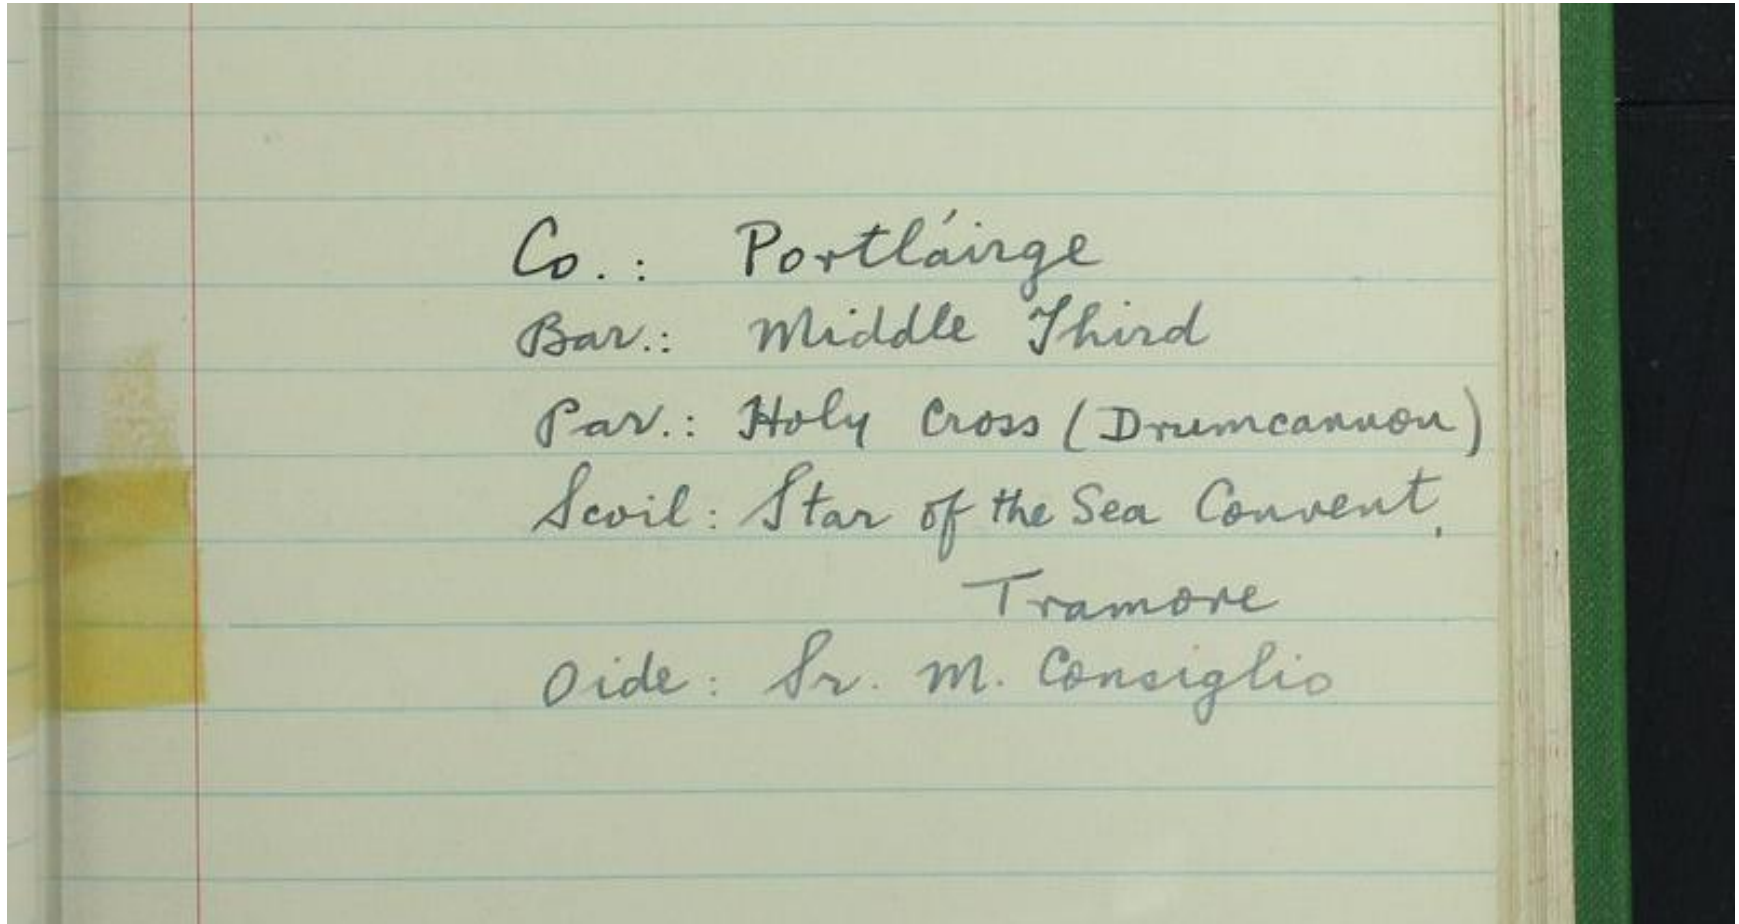 Co.: Portláirge
Bar.: Middle Third
Par.: Holy Cross (Drumcannon)
Scoil: Star of the Sea Convent,
Tramore
Oide: Sr. M. Consiglio